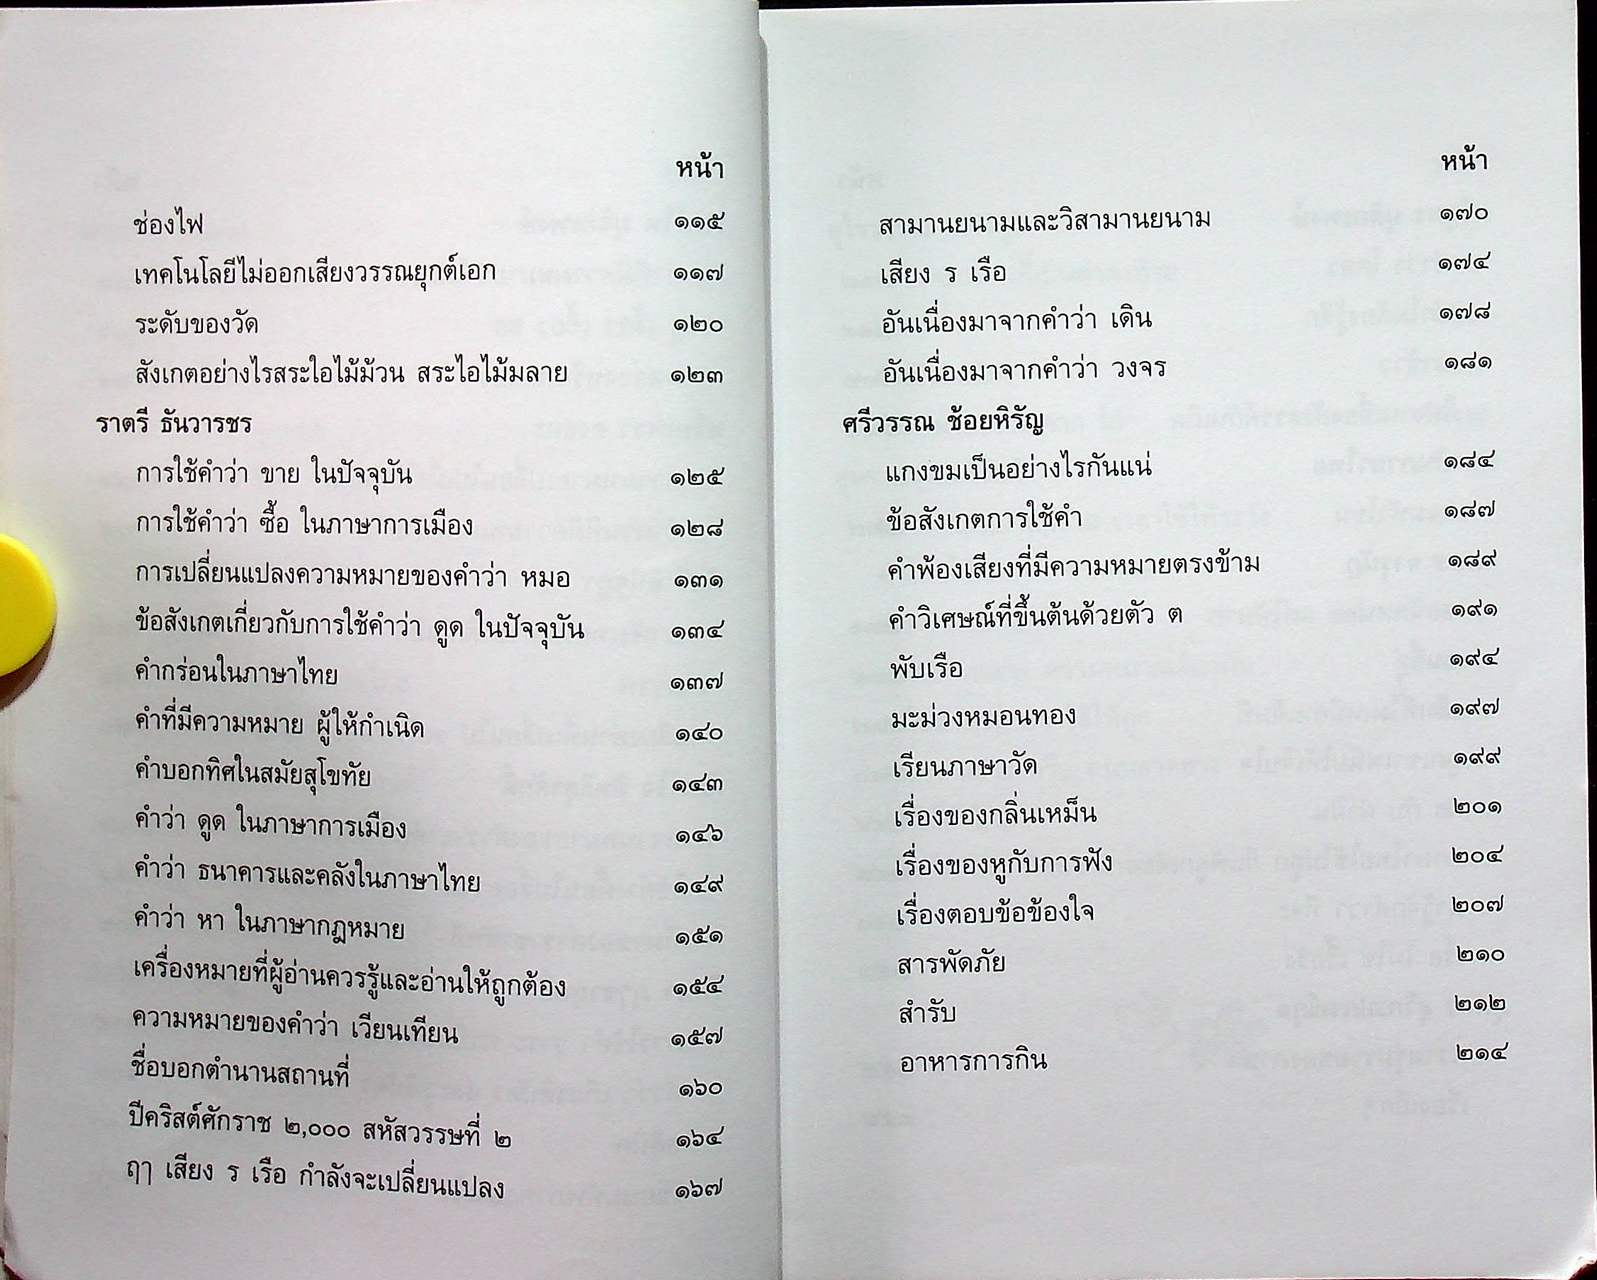 หน้า
ช่องไฟ ๑๑๕
เทคโนโลยีไม่ออกเสียงวรรณยุกต์เอก ๑๑๗
ระดับของวัด ๑๒๐
สังเกตอย่างไรสระใอไม้ม้วน สระไอไม้มลาย ๑๒๓
ราตรี ธันวารชร
การใช้คำว่า ขาย ในปัจจุบัน ๑๒๕
การใช้คำว่า ซื้อ ในภาษาการเมือง ๑๒๘
การเปลี่ยนแปลงความหมายของคำว่า หมอ ๑๓๑
ข้อสังเกตเกี่ยวกับการใช้คำว่า ดูด ในปัจจุบัน ๑๓๔
คำกร่อนในภาษาไทย ๑๓๗
คำที่มีความหมาย ผู้ให้กำเนิด ๑๔๐
คำบอกทิศในสมัยสุโขทัย ๑๔๓
คำว่า ดูด ในภาษาการเมือง ๑๔๖
คำว่า ธนาคารและคลังในภาษาไทย ๑๔๙
คำว่า หา ในภาษากฎหมาย ๑๕๑
เครื่องหมายที่ผู้อ่านควรรู้และอ่านให้ถูกต้อง ๑๕๔
ความหมายของคำว่า เวียนเทียน ๑๕๗
ชื่อบอกตำนานสถานที่ ๑๖๐
ปีคริสต์ศักราช ๒,๐๐๐ สหัสวรรษที่ ๒ ๑๖๔
ฤๅ เสียง ร เรือ กำลังจะเปลี่ยนแปลง ๑๖๗
หน้า
สามานยนามและวิสามานยนาม ๑๗๐
เสียง ร เรือ ๑๗๔
อันเนื่องมาจากคำว่า เดิน ๑๗๘
อันเนื่องมาจากคำว่า วงจร ๑๘๑
ศรีวรรณ ช้อยหิรัญ
แกงขมเป็นอย่างไรกันแน่ ๑๘๔
ข้อสังเกตการใช้คำ ๑๘๗
คำพ้องเสียงที่มีความหมายตรงข้าม ๑๘๙
คำวิเศษณ์ที่ขึ้นต้นด้วยตัว ต ๑๙๑
พับเรือ ๑๙๔
มะม่วงหมอนทอง ๑๙๗
เรียนภาษาวัด ๑๙๙
เรื่องของกลิ่นเหม็น ๒๐๑
เรื่องของหูกับการฟัง ๒๐๔
เรื่องตอบข้อข้องใจ ๒๐๗
สารพัดภัย ๒๑๐
สำรับ ๒๑๒
อาหารการกิน ๒๑๔